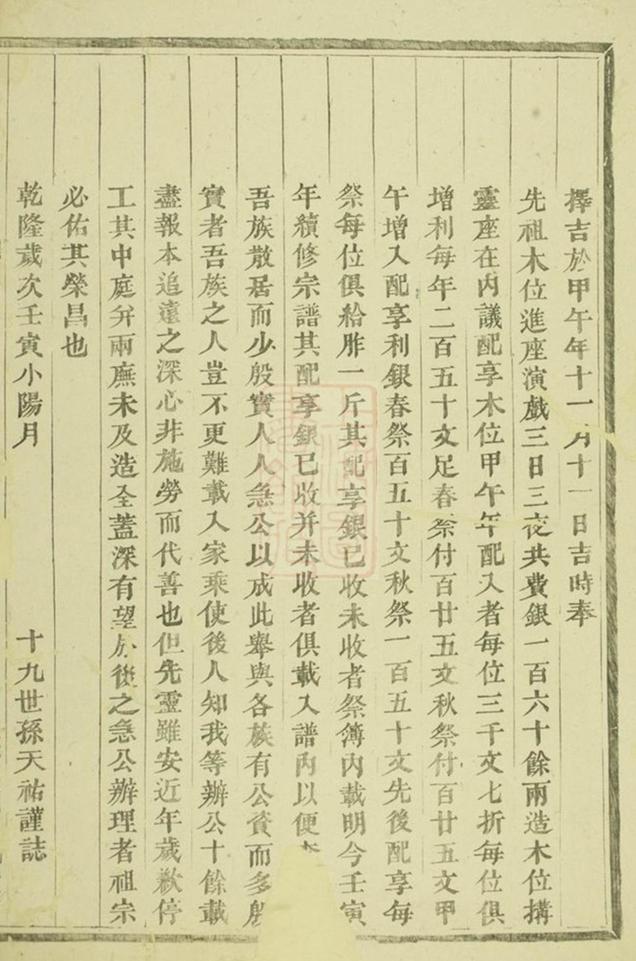 擇吉於甲午年十一月十一日吉時奉
先祖木位進座演戲三日三夜共費銀一百六十餘兩造木位搆
靈座在內議配享木位甲午年配入者每位三千文七折每位俱
增利每年二百五十文足春祭付百廿五文秋祭付百廿五文甲
午增入配享利銀春祭百五十文秋祭一百五十文先後配享每
祭每位俱給胙一斤其配享銀已收未收者祭簿內載明今壬寅
年續修宗譜其配享銀已收并未收者俱載入譜內以便
吾族散居而少殷實人人急公以成此舉與各族有公貲而多殷
實者吾族之人豈不更難載入家乘使後人知我等辦公十餘載
盡報本追遠之深心非施勞而代善也但先靈雖安近年歲歉停
工其中庭弁兩廡未及造全蓋深有望於後之急公辦理者祖宗
必佑其榮昌也
乾隆歲次壬寅小陽月 十九世孫天祐謹誌